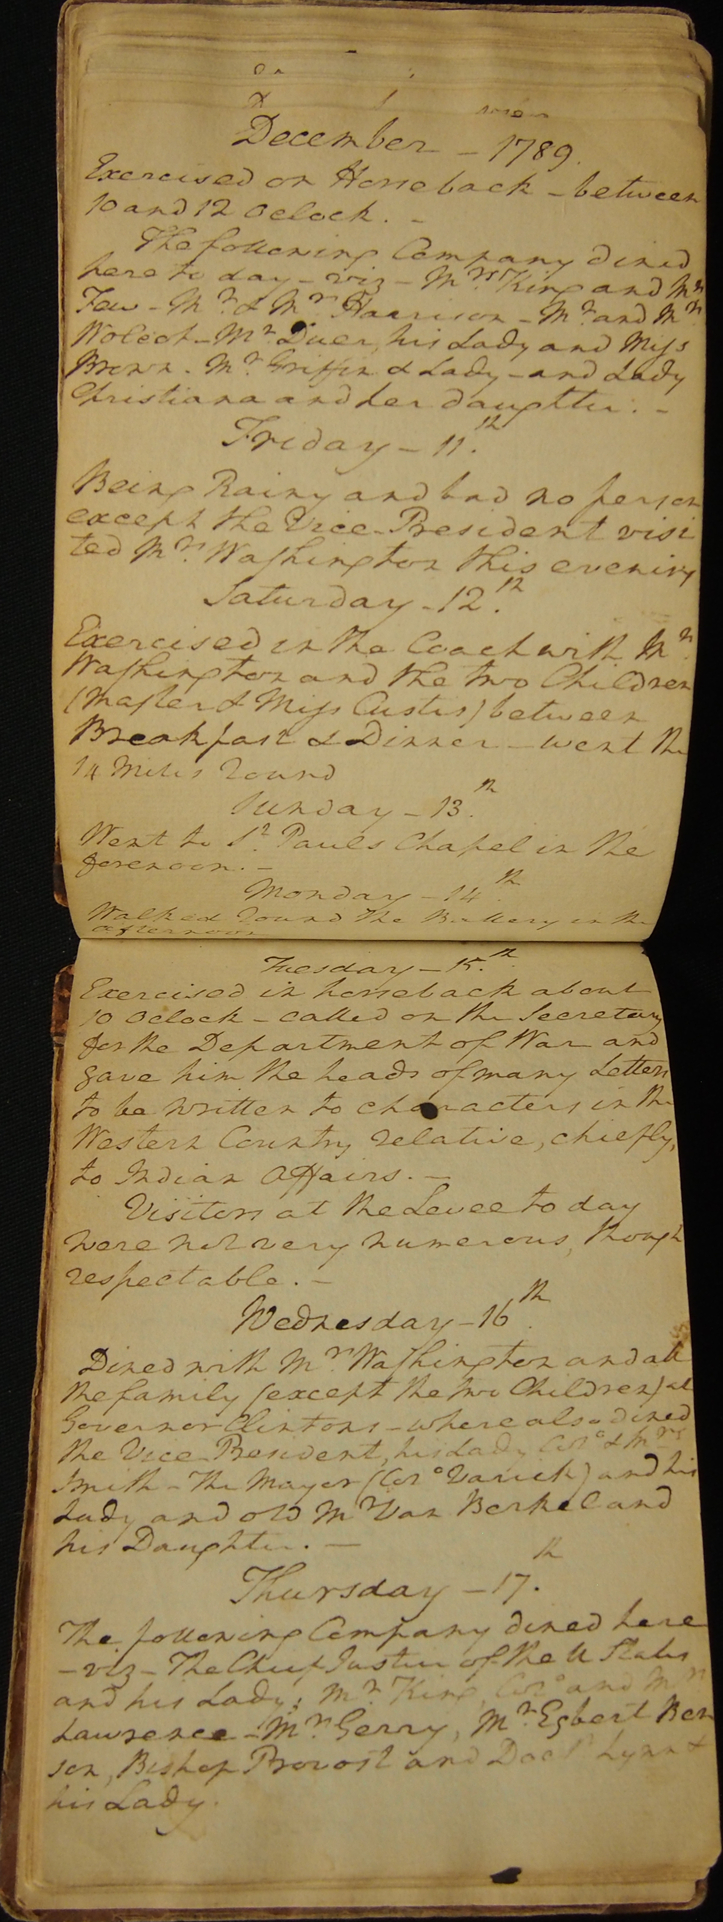 December – 1789.
Exercised on Horseback – between
10 and 12 Oclock. –
The following Company dined
here to day – viz – Mrs King and Mrs
Few – Mr & Mrs Harrison – Mr and Mrs
Wolcot – Mr Duer, his Lady and Miss
Brown – Mr Griffin & Lady – and Lady
Christiana and her daughter. –
Friday – 11.th
Being Rainy and bad no person
except the Vice-President visi
ted Mrs Washington this evening
Saturday – 12.th
Exercised in the Coach with Mrs
Washington and the two Children
(Master & Miss Custis) between
Breakfast & Dinner – went the
14 Miles round
Sunday – 13.th
Went to St Pauls Chapel in the
forenoon. –
Monday – 14.th
Walked round the Battery in the
afternoon
Tuesday – 15.th
Exercised in horseback about
10 Oclock – called on the Secretary
for the Department of War and
gave him the heads of many Letters
to be written to characters in the
Western Country relative, chiefly,
to Indian Affairs. –
Visitors at the Levee to day
were not very numerous, though
respectable. –
Wednesday – 16th
Dined with Mrs Washington and all
the family (except the two Children) at
Governor Clintons – where also dined
the Vice-President, his Lady Colo & Mrs
Smith – The Mayor (Colo Varick) and his
Lady and old Mr Van Berkel and
his Daughter. –
Thursday – 17.th
The following Company dined here
– viz – The Chief Justice of the U States
and his Lady; Mr King, Colo and Mrs
Lawrence – Mr Gerry, Mr Egbert Ben
son, Bishop Provost and Doctr Lynn &
his Lady.